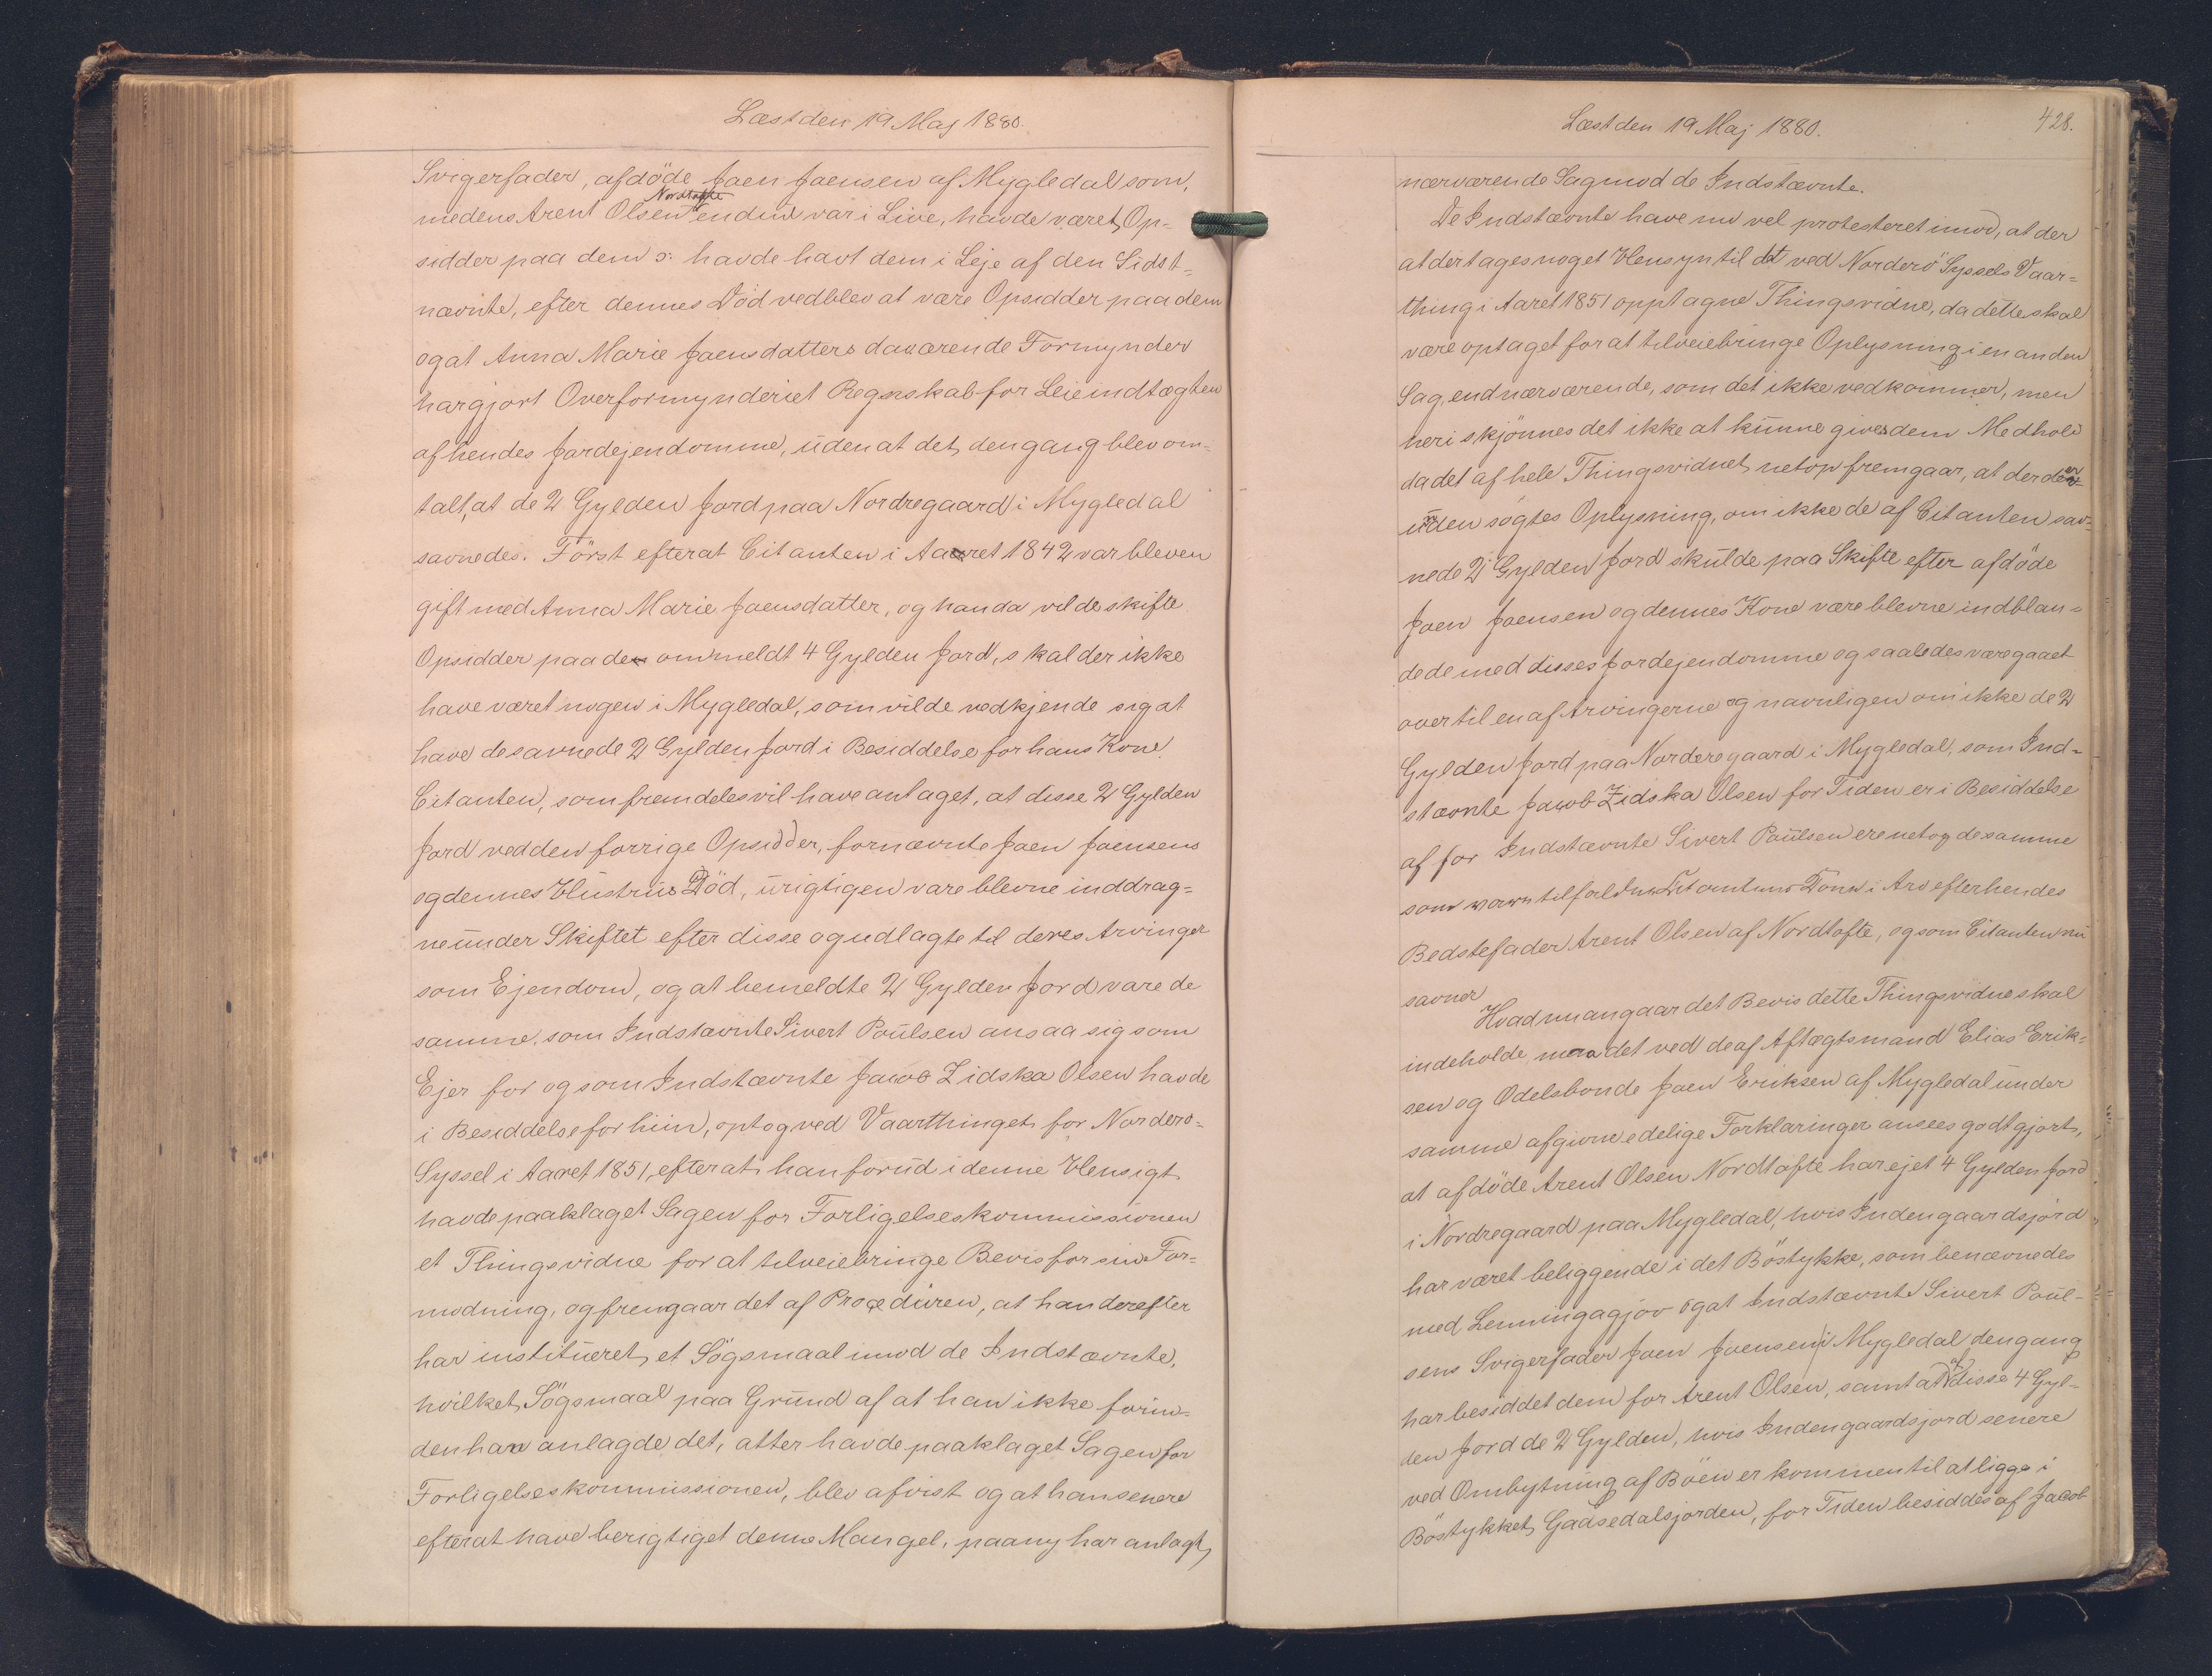 Læst den 19 Maj 1880.
Svigerfader, afdöde Joen Joensen af Mygledal som,
Nordtofte
medens Arent Olsen endnu var i Live, havde været Op-
sidder paa dem ɔ: havde havt dem i Leje af den Sidst-
nævnte, efter dennes Död vedblev at være Opsidder paa dem
og at Anna Marie Joensdatters daværende Formynder
har gjort Overformynderiet Regnskab for Leieindtægten
af hendes Jordejendomme, uden at det dengang blev om-
talt, at de 2 Gylden Jord paa Nordregaard i Mygledal
savnedes. Först efterat Citanten i Aaret 1842 var bleven
gift med Anna Marie Joensdatter, og han da vilde skifte
Opsidder paa de ommeldt 4 Gylden Jord, skal der ikke
have været nogen i Mygledal, som vilde vedkjende sig at
have de savnede 2 Gylden Jord i Besiddelse for hans Kone
Citanten, som fremdeles vil have antaget, at disse 2 Gylden
Jord ved den forrige Opsidder, fornævnte Joen Joensens
og dennes Hustrus Död, urigtigen vare blevne inddrag-
ne under Skiftet efter disse og udlagte til deres Arvinger
som Ejendom, og at bemeldte 2 Gylden Jord vare de
samme, som Indstævnte Sivert Poulsen ansaa sig som
Ejer for og som Indstævnte Jacob Zidska Olsen havde
i Besiddelse for hiin, optog ved Vaarthinget for Norderö-
Syssel i Aaret 1851, efterat han forud i denne Hensigt
havde paaklaget Sagen for Forligelseskommissionen
et Thingsvidne for at tilveiebringe Bevis for sin For-
modning, og fremgaar det af Proceduren, at han derefter
har institueret et Sögsmaal imod de Indstævnte,
hvilket Sögsmaal paa Grund af at han ikke forin-
den han anlagde det, atter havde paaklaget Sagen for
Forligelseskommissionen, blev afvist og at han senere
efterat have berigtiget denne Mangel, paany har anlagt
Læst den 19 Maj 1880.
428.
nærværende Sag mod de Indstævnte.
De Indstævnte have nu vel protesteret imod, at der
at der tages noget Hensyn til det ved Norderö Syssels Vaar-
thing i Aaret 1851 opptagne Thingsvidne, da dette skal
være optaget for at tilveiebringe Oplysning i en anden
Sag, end nærværende, som det ikke vedkommer, men
heri skjönnes det ikke at kunne gives dem Medhold
da det af hele Thingsvidnet netop fremgaar, at der den
uden sögtes Oplysning, om ikke de af Citanten sav-
nede 2 Gylden Jord skulde paa Skifte efter afdöde
Joen Joensen og dennes Kone være blevne indblan-
dede med disses Jordejendomme og saaledes være gaaet
over til en af Arvingerne og navnligen om ikke de 2
Gylden Jord paa Norderegaard i Mygledal, som Ind-
stævnte Jacob Zidska Olsen for Tiden er i Besiddelse
af for Indstævnte Sivert Poulsen ere netop de samme
som vare tilfaldne Citantens Kone i Arv efter hendes
Bedstefader Arent Olsen af Nordtofte, og som Citanten nu
savner
Hvad nu angaar det Bevis dette Thingsvidne skal
indeholde maa det ved de af Aftægtsmand Elias Erik-
sen og Odelsbonde Joen Eriksen af Mygledal under
samme afgivne edelige Forklaringer ansees godtgjort,
at afdöde Arent Olsen Nordtofte har ejet 4 Gylden Jord
i Nordregaard paa Mygledal, hvis Indengaardsjord
har været beliggende i det Böstykke, som benævnedes
med Lenningagjov og at Indstævnte Sivert Poul-
sens Svigerfader Joen Joensen i Mygledal dengang
har besiddet dem for Arent Olsen, samt at af disse 4 Gyl-
den Jord de 2 Gylden, hvis Indengaardsjord senere
ved Ombytning af Böen er kommen til at ligge i
Böstykket Gadsedalsjorden, for Tiden besiddes af Jacob